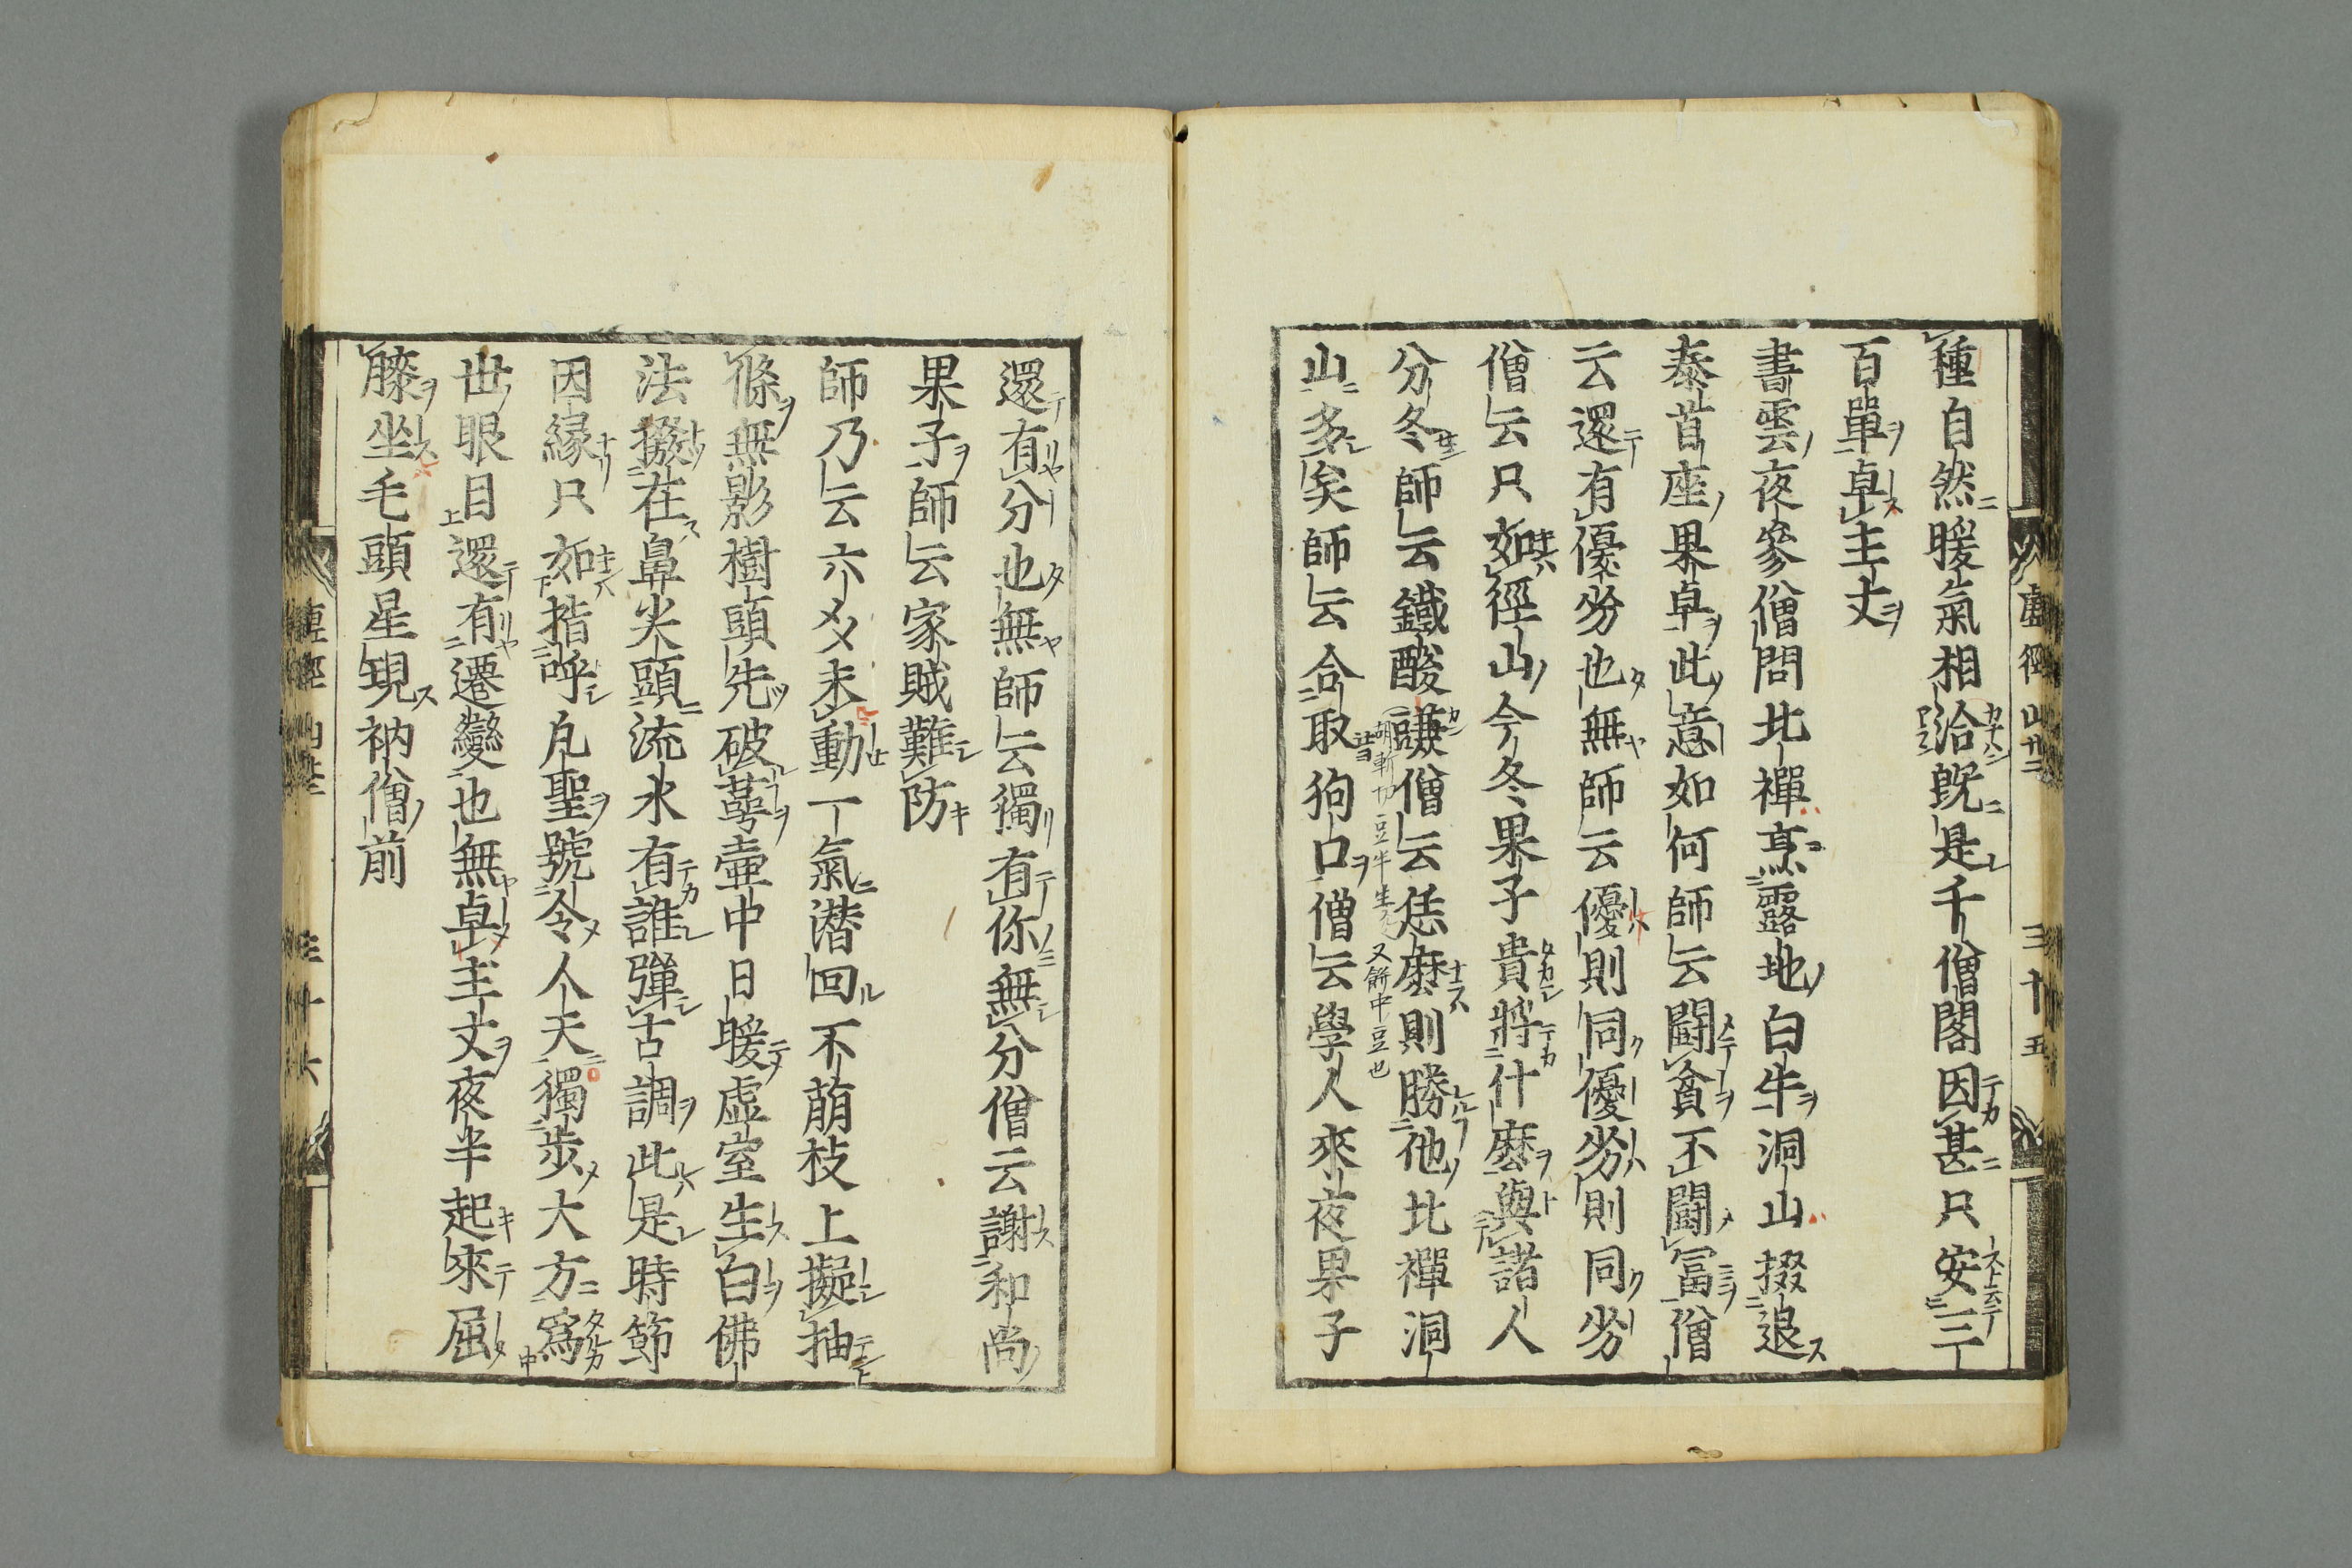 種自然暖氣相洽既是千僧閣因甚只安三
百單卓主丈
書雲夜參僧問北禪烹露地白牛洞山掇退
泰首座果卓此意如何師云鬪貧不鬪冨僧
云還有優劣也無師云優則同優劣則同劣
僧云只如徑山今冬果子貴將什麽與諸人
分冬師云鐵酸豏僧云恁麽則勝他北禪洞
又餅中豆也
山多矣師云合取狗口僧云學人來夜果子
虛徑山 三十五
還有分也無師云獨有你無分僧云謝和尚
果子師云家賊難防
師乃云六爻未動一氣潛回不萠枝上擬抽
條無影樹頭先破蕚壷中日暖虛室生白佛
法掇在鼻尖頭流水有誰彈古調此是時節
因緣只如揩呼凢聖號令人天獨步大方爲
世眼目還有遷變也無卓主丈夜半起來屈
膝坐毛頭星現衲僧前